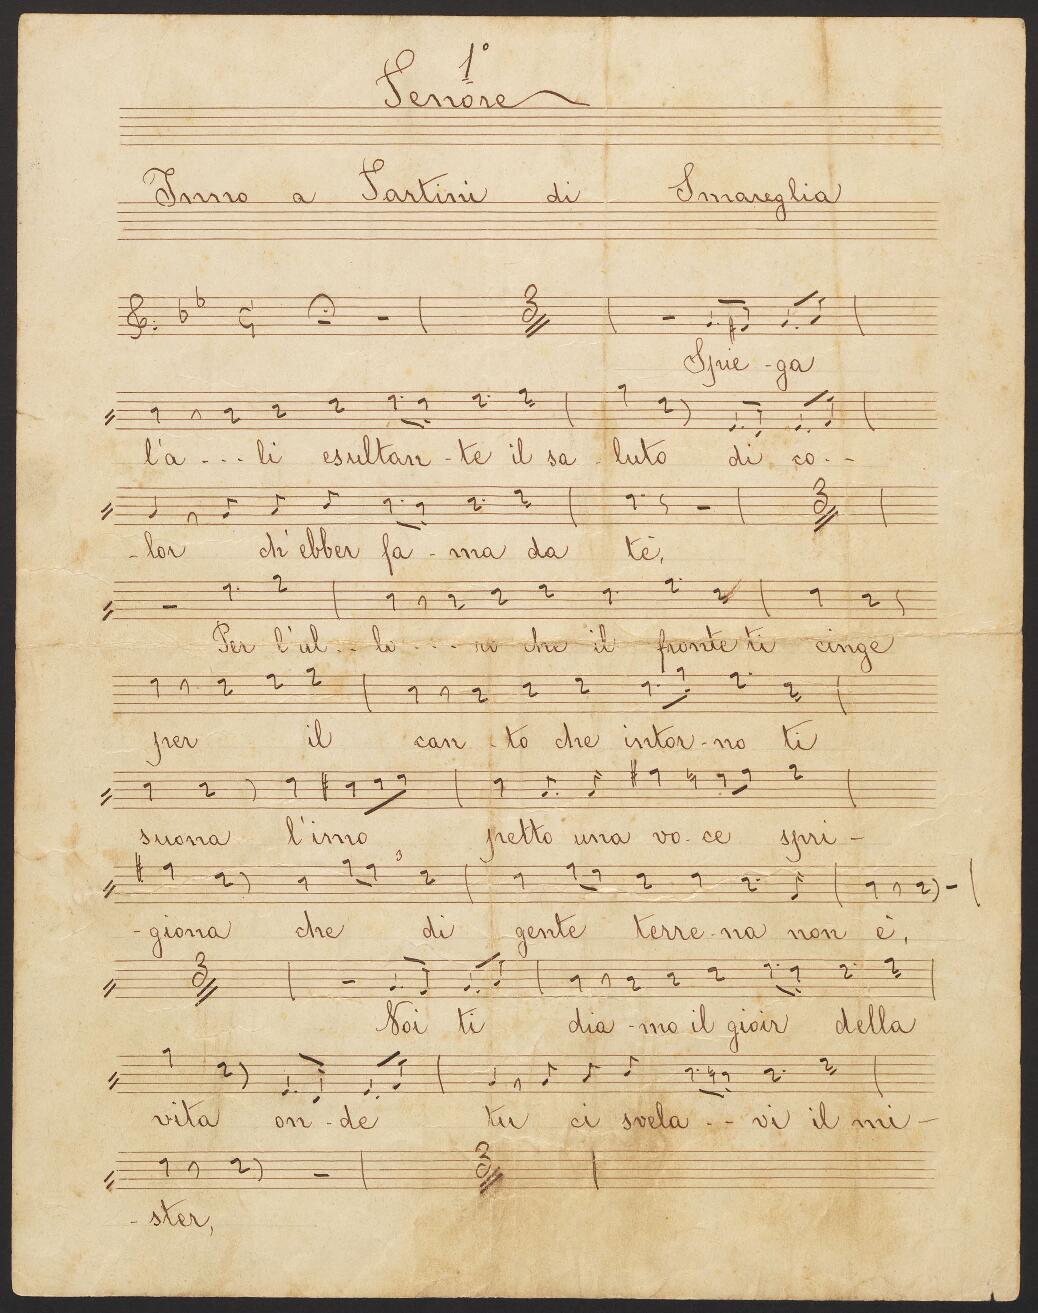 1°
Tenore
Inno a Tartini di Smareglia
3
Spie - ga
l'a - - - li esultan - te il sa - luto di co - -
3
- lor ch'ebber fa - ma da tè,
Per l'al - - lo - - - ro che il fronte ti cinge
per il can - to che intor - no ti
suona l'imo petto una vo - ce spri -
3
- giona che di gente terre - na non è,
3
Noi ti dia - mo il gioir della
vita on - de tu ci svela - - vi il mi -
3
- ster,